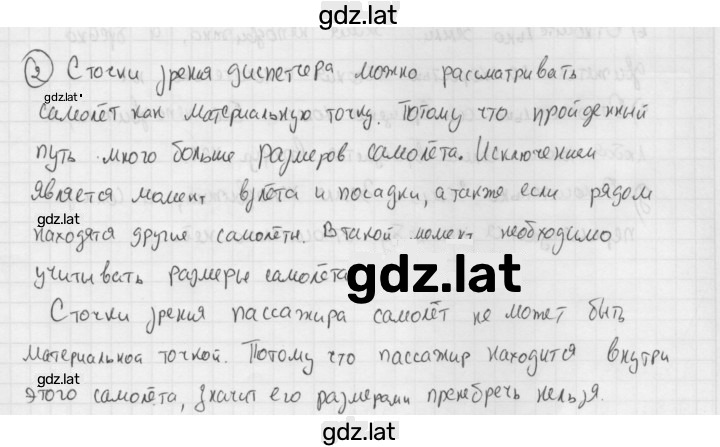 gdz.lat
② С точки зрения диспетчера можно рассматривать
gdz.lat
самолёт как материальную точку. Потому что пройденный
путь много больше размеров самолёта. Исключением
является момент взлёта и посадки, а также если рядом
gdz.lat
находятся другие самолёты. В такой момент необходимо
учитывать размеры самолёта
gdz.lat
С точки зрения пассажира самолёт не может быть
материальной точкой. Потому что пассажир находится внутри
gdz.lat
этого самолёта, значит его размерами пренебречь нельзя.
gdz.lat